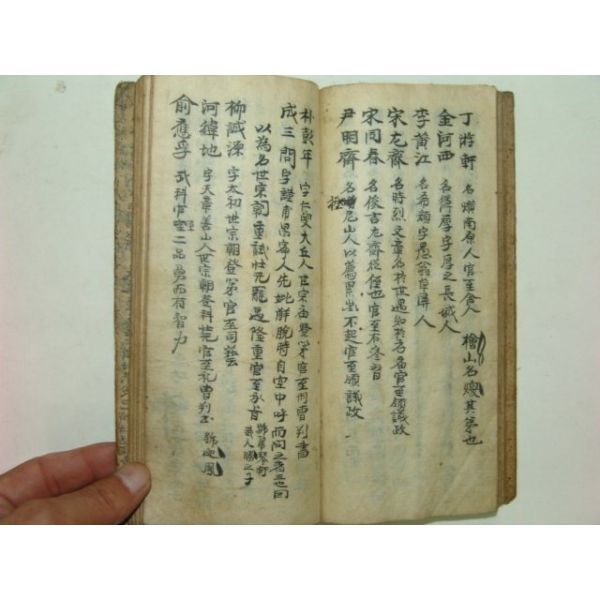 丁游軒 名熿南原人官至舍人 檜山名煥其弟也
金河西 名麟厚字厚之長城人
李黃江 名希顔字愚翁草溪人
宋尤齋 名時烈文章名於世遇知於 官至領議政
宋同春 名俊吉尤齋從侄也官至右參贊
尹明齋 名拯尼山人以薦累出不起官至領議政
朴彭年 字仁叟大丘人世宗 登第官至刑曹判書
成三問 字謹甫昌寧人先妣解脫時自空中呼而問之者三也因
以爲名世宗朝重試壯元寵遇隆重官至 勝之子
柳誠源 字太初世宗朝登第官至司藝
河緯地 字天章善山人世宗朝登科壯元官至禮曹判書 丹
兪應孚 武科官至二品勇而有智力